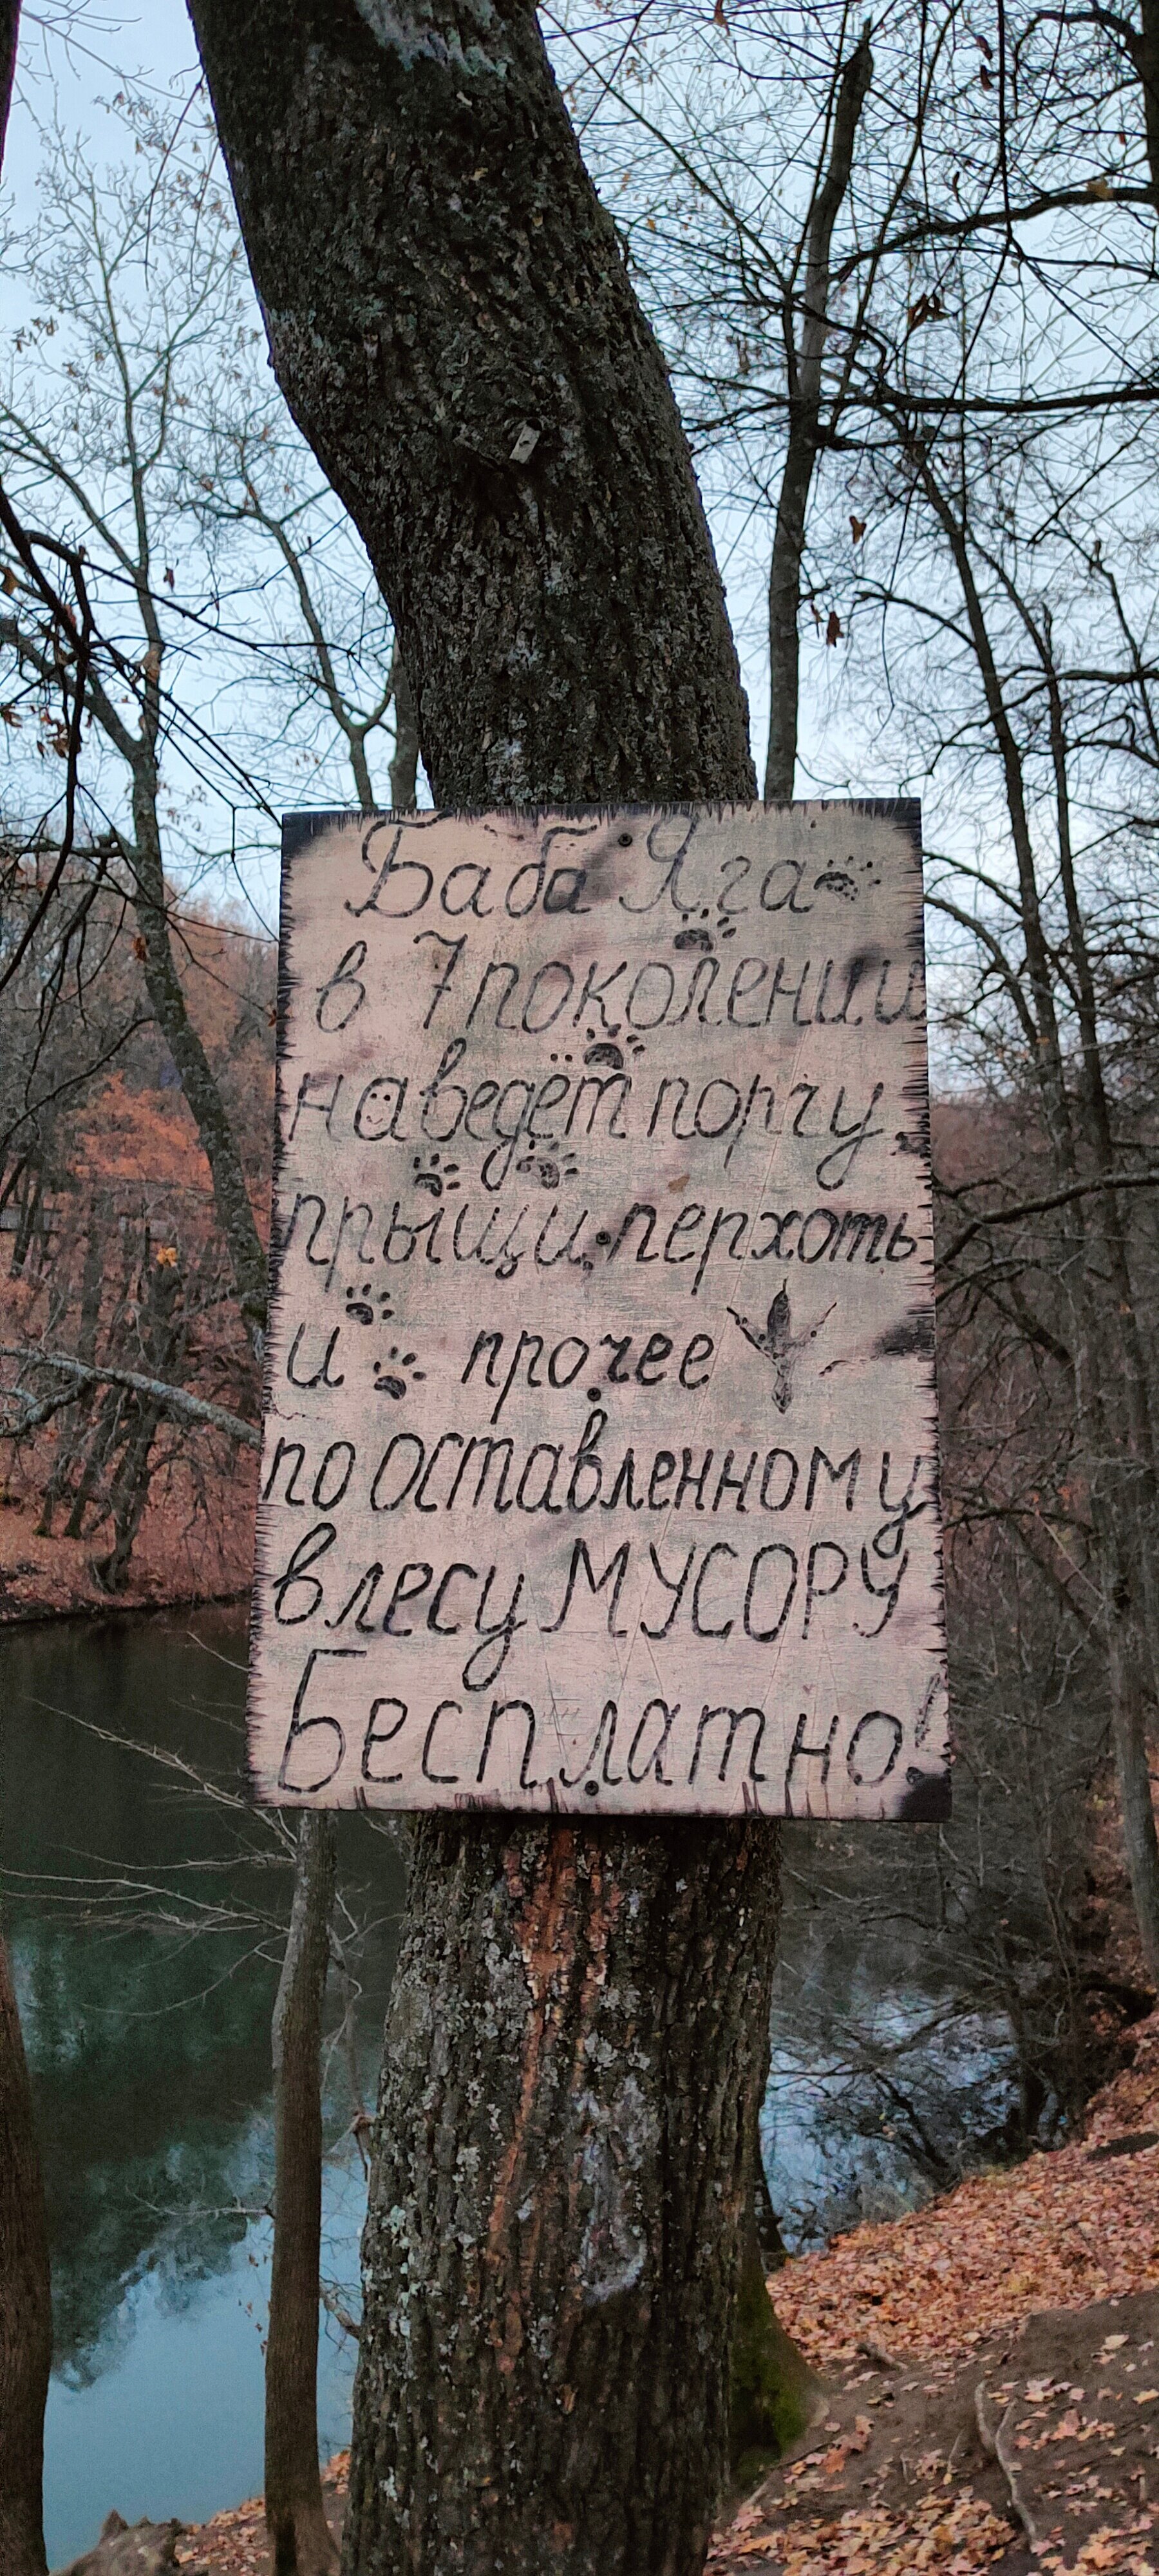 Баба Яга
в 7 поколении
наведёт порчу
прыщи, перхоть
и прочее
по оставленному
в лесу МУСОРУ
Бесплатно!